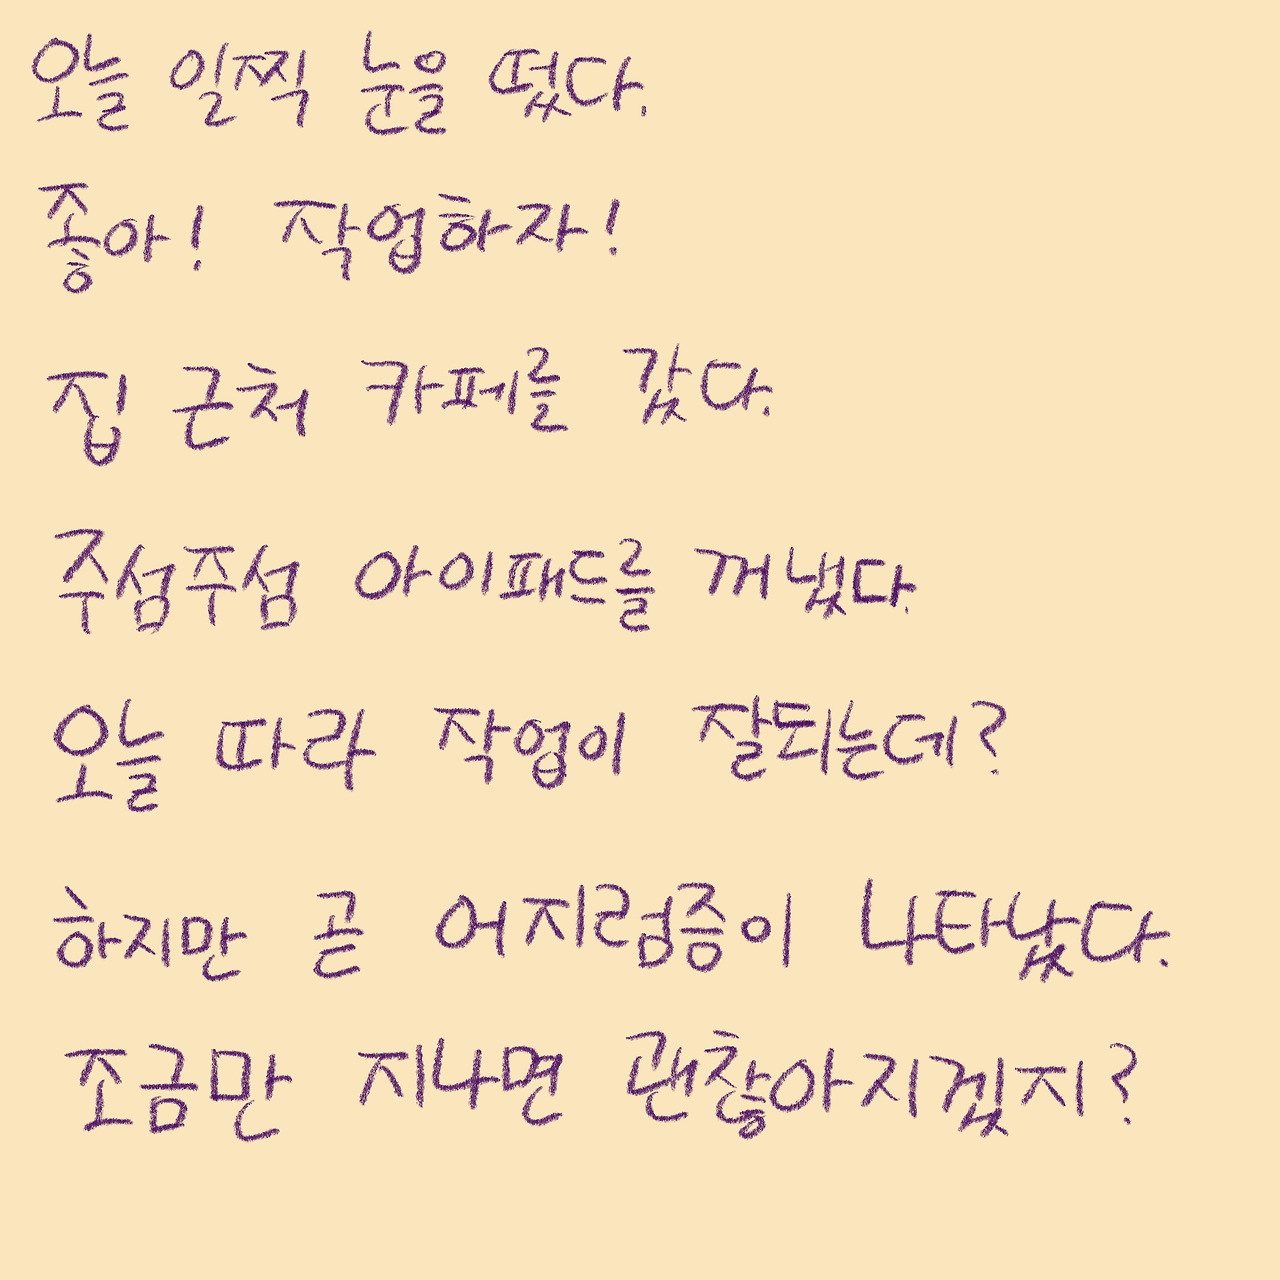 오늘 일찍 눈을 떴다.
좋아! 작업하자!
집 근처 카페를 갔다.
주섬주섬 아이패드를 꺼냈다.
오늘 따라 작업이 잘되는데?
하지만 곧 어지럼증이 나타났다.
조금만 지나면 괜찮아지겠지?